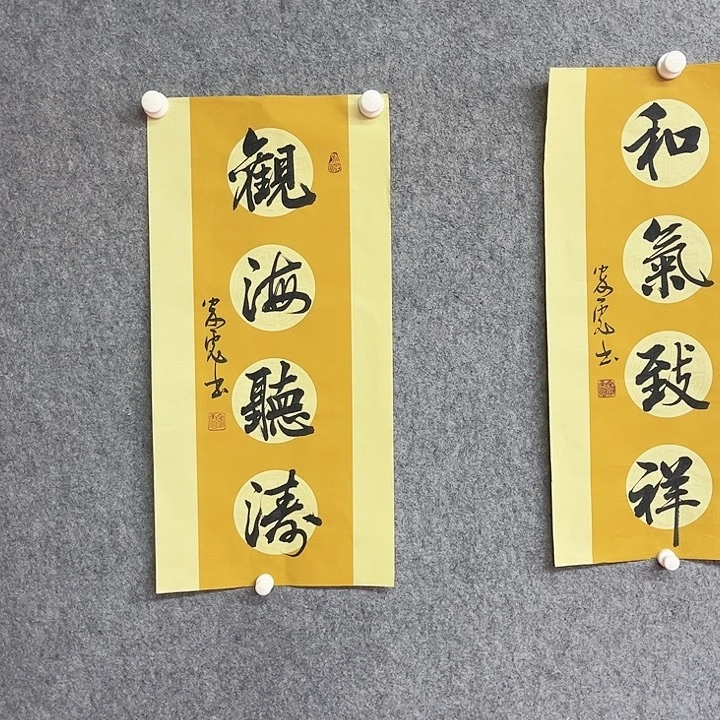 觀海聽濤
和氣致祥